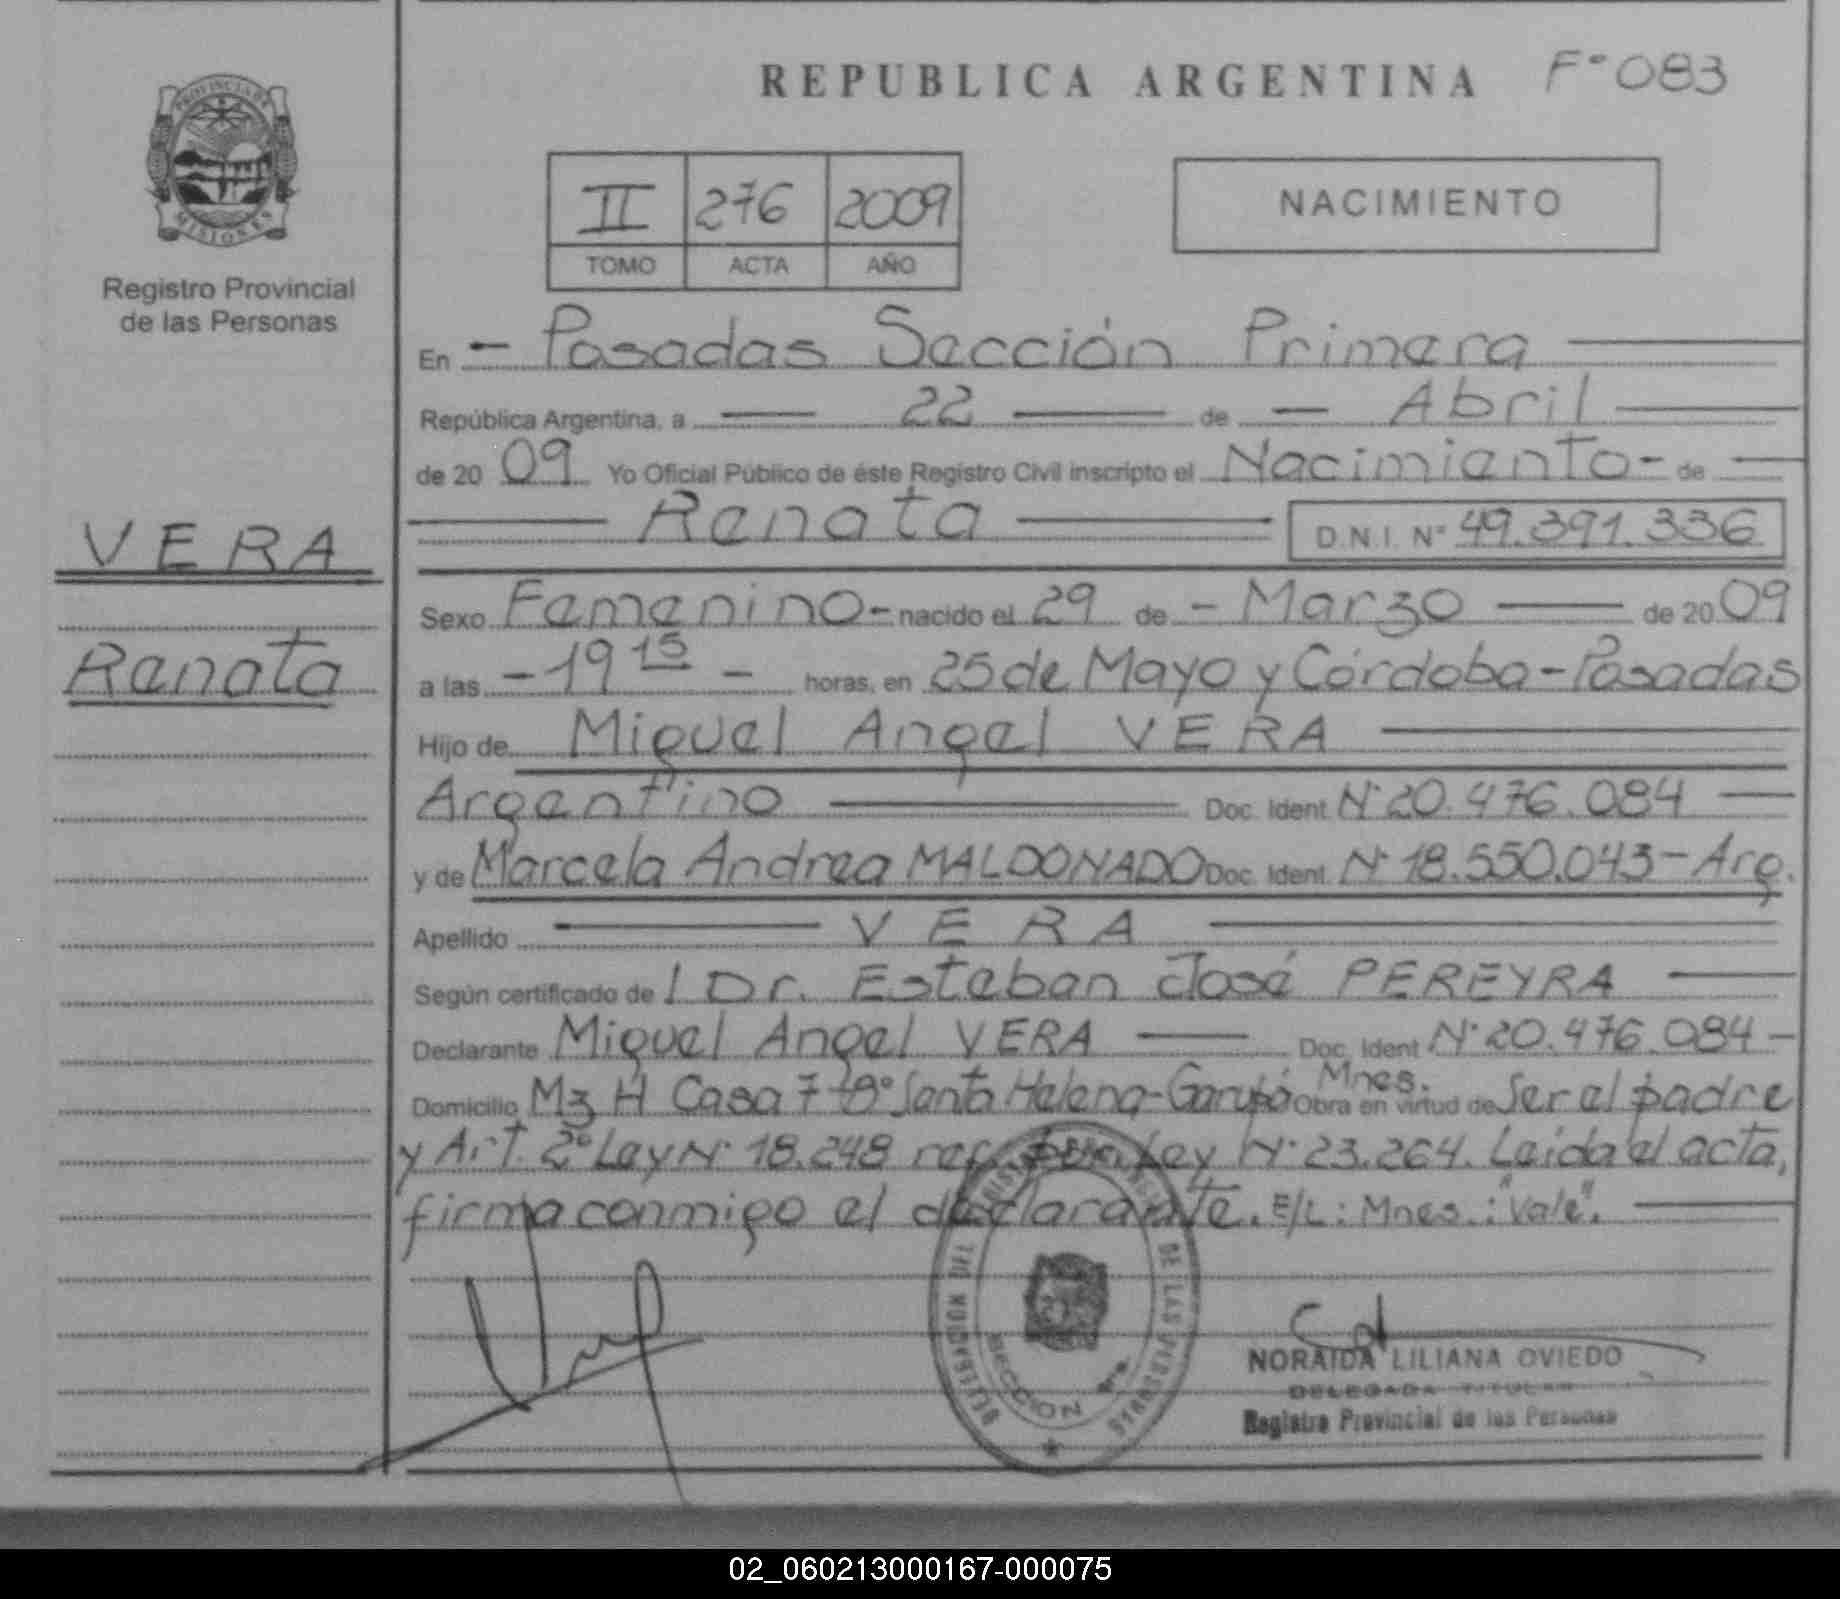 REPUBLICA ARGENTINA F° 083
PROVINCIA DE
MISIONES
Registro Provincial
de las Personas
II 276 2009
TOMO ACTA AÑO
NACIMIENTO
En - Posadas Sección Primera
República Argentina, a 22 de - Abril
de 20 09 Yo Oficial Público de éste Registro Civil inscripto el Nacimiento - de
VERA
Renata
Renata D.N.I. N° 49.391.336
Sexo Femenino - nacido el 29 de - Marzo de 20 09
a las - 19 15 - horas, en 25 de Mayo y Córdoba - Posadas
Hijo de Miguel Angel VERA
Argentino Doc. Ident. N° 20.476.084
y de Marcela Andrea MALDONADO Doc. Ident. N° 18.550.043 - Arg.
Apellido VERA
Según certificado de / Dr. Esteban José PEREYRA
Declarante Miguel Angel VERA Doc. Ident N° 20.476.084 -
Mnes.
Domicilio Mz H Casa 7 B° Santa Helena - Garupá Obra en virtud de Ser el padre
y Art. 2° Ley N° 18.248 ref. por Ley N° 23.264. Leída el acta,
firma conmigo el declarante. E/L: Mnes.: "Vale".
DELEGACION DEL REGISTRO DE LAS PERSONAS
SECCION
NORAIDA LILIANA OVIEDO
DELEGADA TITULAR
Registro Provincial de las Personas
02_060213000167-000075